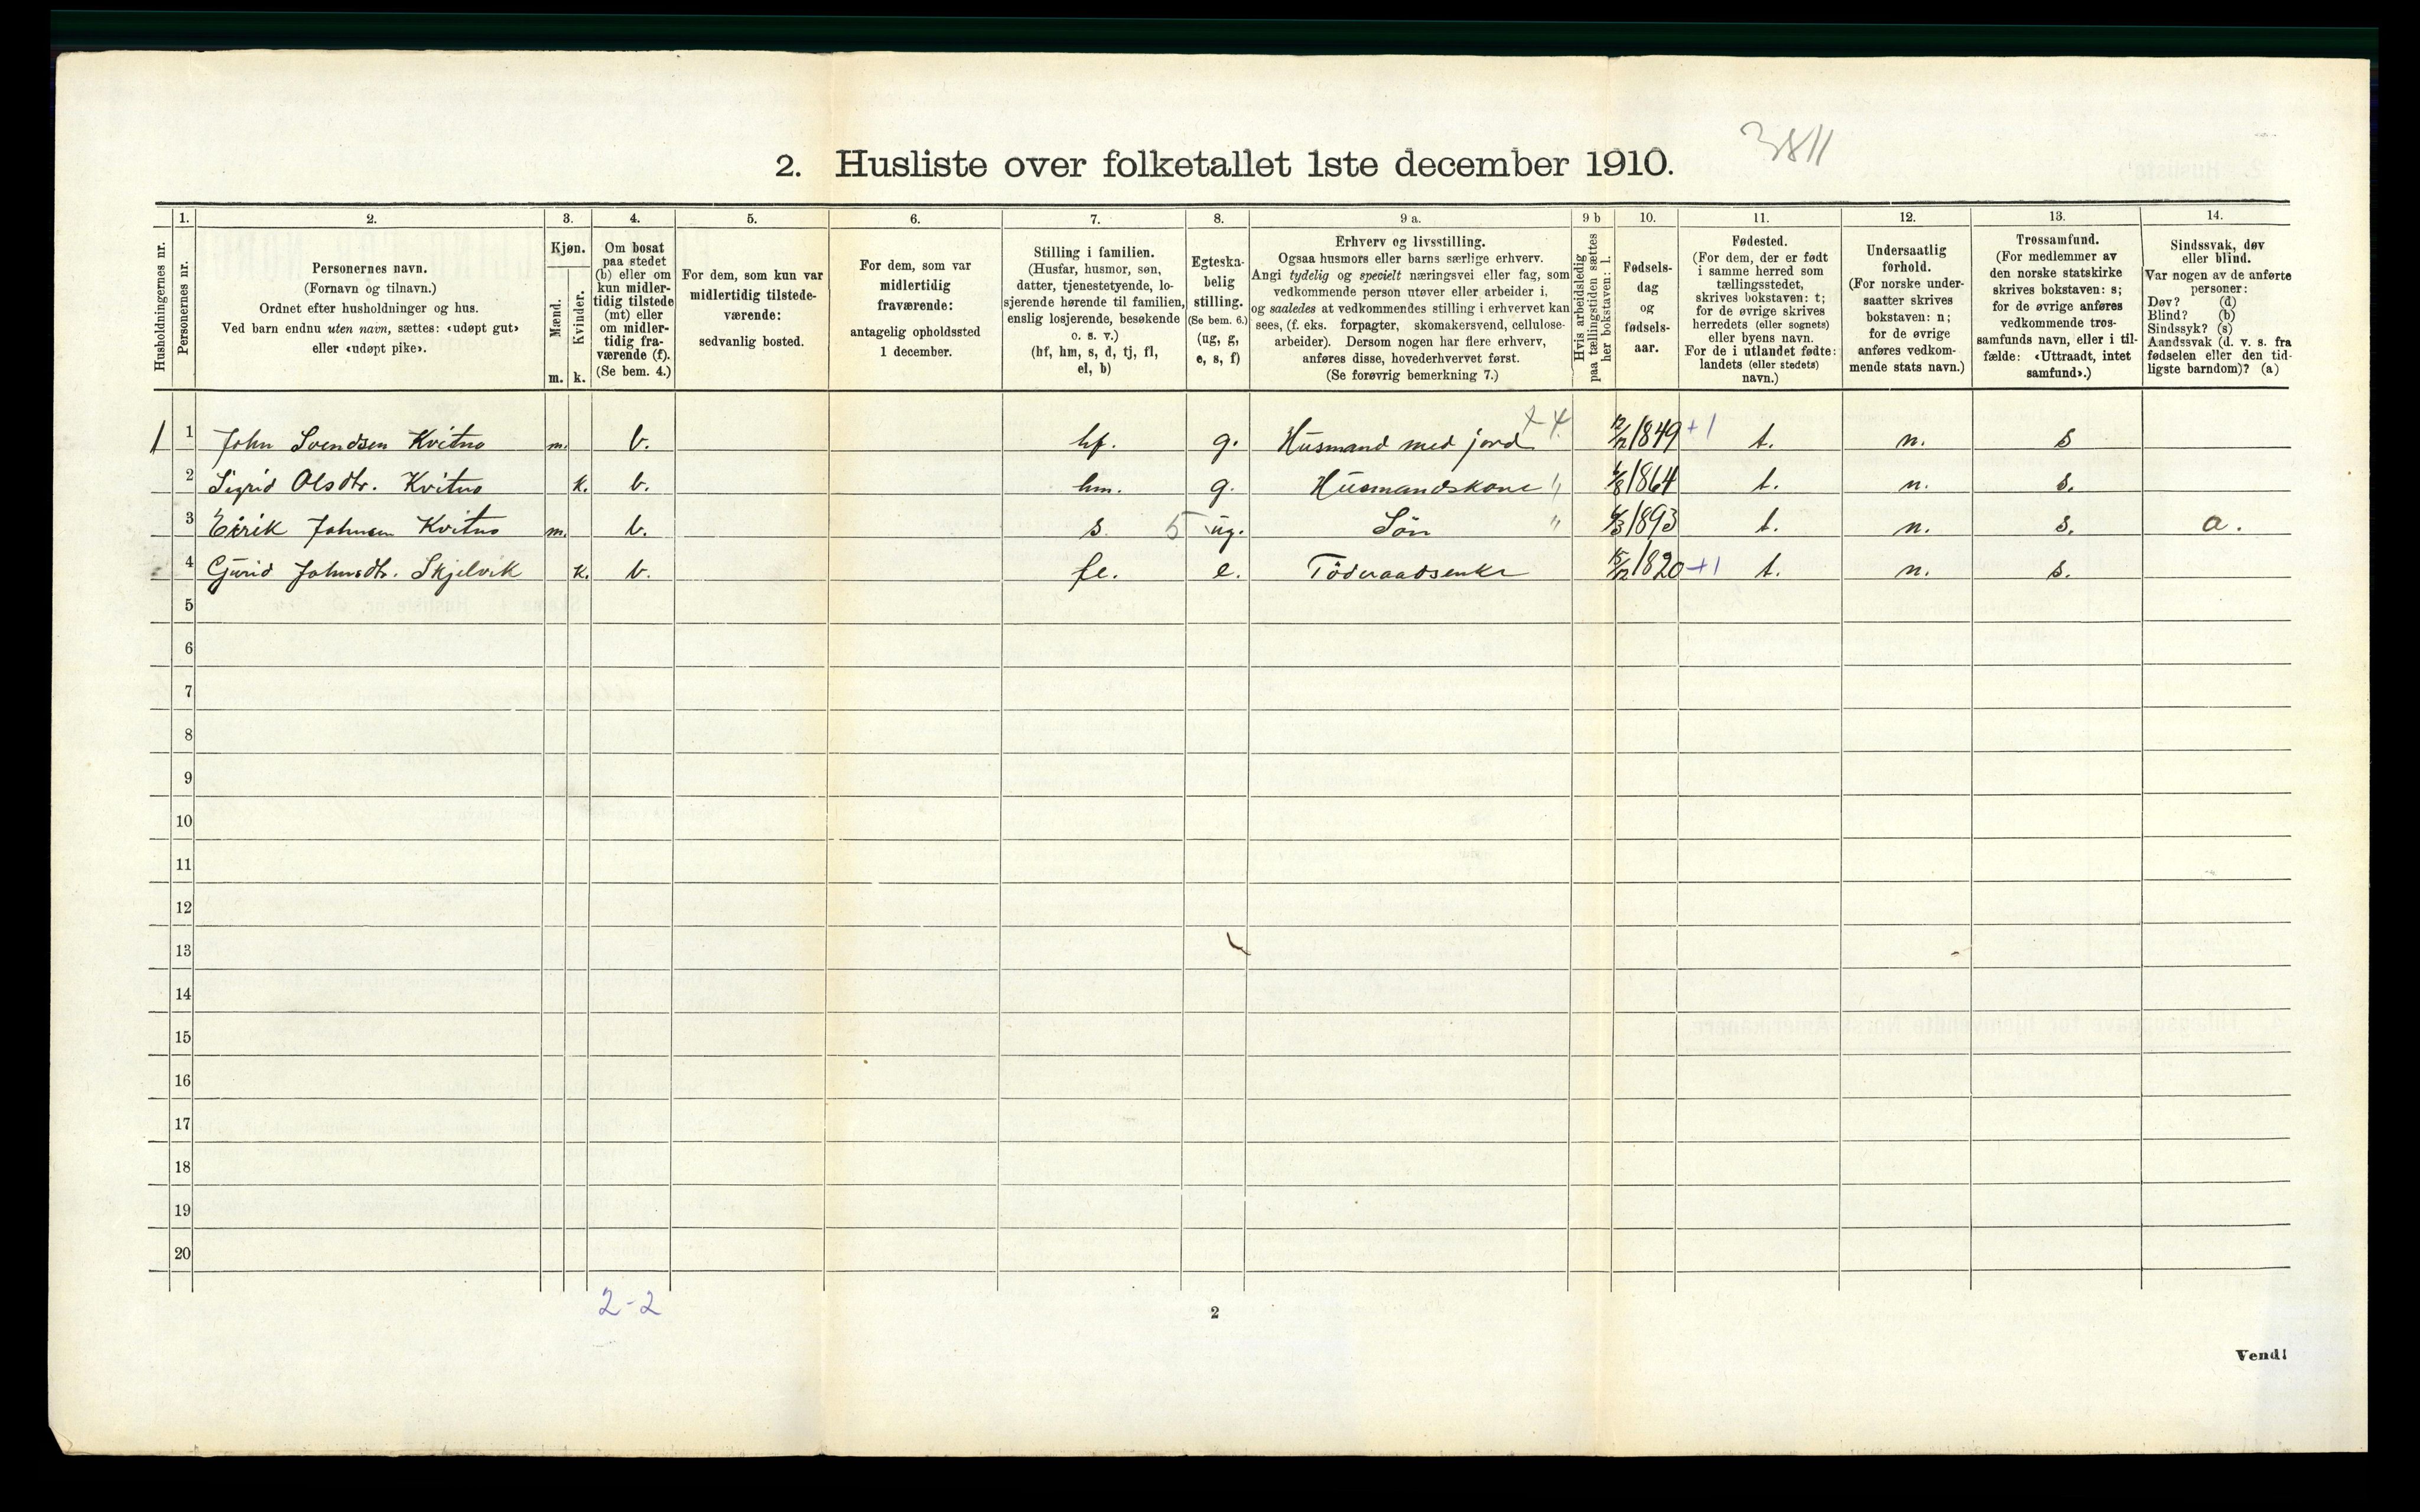 3811
2. Husliste over folketallet 1ste december 1910.
Husholdningernes nr.
1. Personernes nr.
2. Personernes navn.
(Fornavn og tilnavn.)
Ordnet efter husholdninger og hus.
Ved barn endnu uten navn, sættes: «udøpt gut»
eller «udøpt pike».
3. Kjøn.
Mænd. Kvinder.
m. k.
4. Om bosat
paa stedet
(b) eller om
kun midler-
tidig tilstede
(mt) eller
om midler-
tidig fra-
værende (f).
(Se bem. 4.)
5. For dem, som kun var
midlertidig tilstede-
værende:
sedvanlig bosted.
6. For dem, som var
midlertidig
fraværende:
antagelig opholdssted
1 december.
7. Stilling i familien.
(Husfar, husmor, søn,
datter, tjenestetyende, lo-
sjerende hørende til familien,
enslig losjerende, besøkende
o. s. v.)
(hf, hm, s, d, tj, fl,
el, b)
8. Egteska-
belig
stilling.
(Se bem. 6.)
(ug, g,
e, s, f)
9 a. Erhverv og livsstilling.
Ogsaa husmors eller barns særlige erhverv.
Angi tydelig og specielt næringsvei eller fag, som
vedkommende person utøver eller arbeider i,
og saaledes at vedkommendes stilling i erhvervet kan
sees, (f. eks. forpagter, skomakersvend, cellulose-
arbeider). Dersom nogen har flere erhverv,
anføres disse, hovederhvervet først.
(Se forøvrig bemerkning 7.)
9 b Hvis arbeidsledig
paa tællingstiden sættes
her bokstaven: l.
10. Fødsels-
dag
og
fødsels-
aar.
11. Fødested.
(For dem, der er født
i samme herred som
tællingsstedet,
skrives bokstaven: t;
for de øvrige skrives
herredets (eller sognets)
eller byens navn.
For de i utlandet fødte:
landets (eller stedets)
navn.)
12. Undersaatlig
forhold.
(For norske under-
saatter skrives
bokstaven: n;
for de øvrige
anføres vedkom-
mende stats navn.)
13. Trossamfund.
(For medlemmer av
den norske statskirke
skrives bokstaven: s;
for de øvrige anføres
vedkommende tros-
samfunds navn, eller i til-
fælde: «Uttraadt, intet
samfund».)
14. Sindssvak, døv
eller blind.
Var nogen av de anførte
personer:
Døv? (d)
Blind? (b)
Sindssyk? (s)
Aandssvak (d. v. s. fra
fødselen eller den tid-
ligste barndom)? (a)
1 1 John Svendsen Kvitno m. b. hf. g. Husmand med jord 12/12 1849 +1 t. n. s
2 Sigrid Olsdtr. Kvitno k. b. hm. g. Husmandskone " 6/8 1864 t. n. s.
3 Eirik Johnsen Kvitno m. b. s 5 ug. Sön " 6/3 1893 t. n. s. a.
4 Gurid Johnsdtr. Skjelvik k. b. fl. e. Föderaadsenke 15/12 1820 +1 t. n. s.
5
6
7
8
9
10
11
12
13
14
15
16
17
18
19
20
2-2
2
Vend!